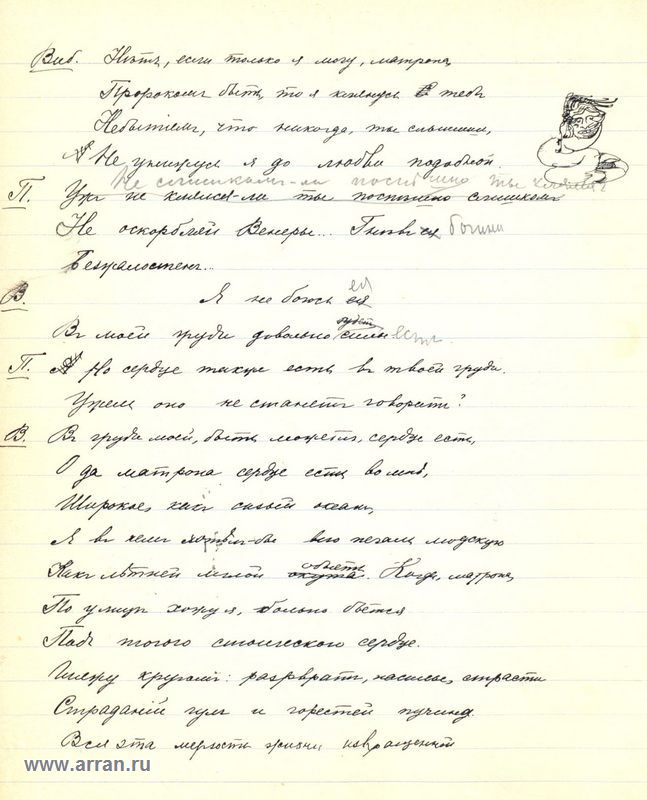 Виб. Нѣтъ, если только я могу, матрона,
Пророкомъ быть, то я клянусь тебѣ
Небытіемъ, что никогда, ты слышишь,
Не унижусь я до любви подобной.
Не слишкомъ-ли поспѣшно ты
П. Ужъ не клялся-ли ты поспѣшно слишкомъ
Не оскорбляй Венеры... Гнѣвъ ея богини
Безжалостенъ...
В. Я не боюсь ея ея
Въ моей груди довольно будетъ силы есть
П. Но сердце также есть въ твоей груди.
Ужель оно не станетъ говорить?
В. Въ груди моей, быть можетъ, сердце есть,
О да матрона сердце есть во мнѣ,
Широкое, какъ сизый океанъ,
Я въ немъ хотѣлъ-бы всю печаль людскую
Какъ лѣтней мглой окутать обнять. Когда, матрона,
По улицѣ хожу я, больно бьется
Подъ тогою стоическою сердце.
Гляжу кругомъ: развратъ, насилье, страсти
Страданій гулъ и горестей пучина
Вся эта мерзость жизни извращенной
www.arran.ru